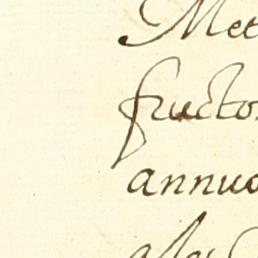 Met
fructo
annuo